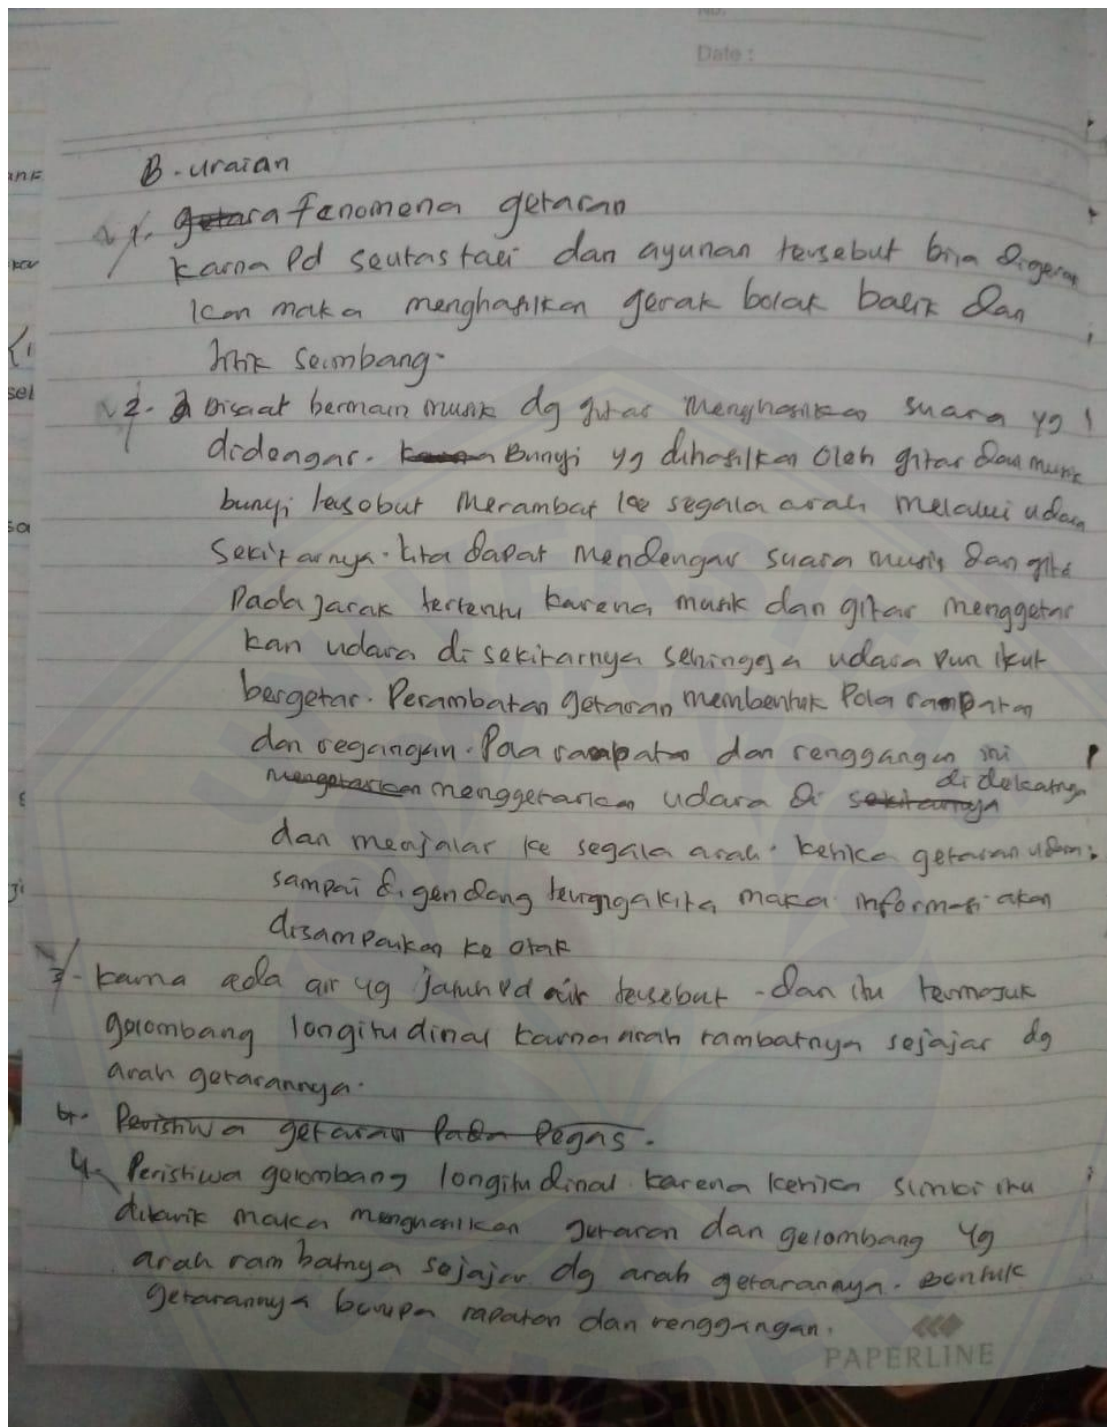 No.
Date :
B. uraian
1. fenomena getaran
karna Pd seutas tali dan ayunan tersebut bila digerak
kan maka menghasilkan gerak bolak balik dan
titik seimbang.
2. Disaat bermain musik dg gitar menghasilkan suara yg
didengar. Bunyi yg dihasilkan oleh gitar dan musik
bunyi tersebut merambat ke segala arah melalui udara
sekitarnya. kita dapat mendengar suara musik dan gita
Pada jarak tertentu karena musik dan gitar menggetar
kan udara di sekitarnya sehingga udara pun ikut
bergetar. Perambatan getaran membentuk Pola rampatan
dan regangan. Pola rampatan dan renggangan ini
menggetarkan udara di didekatnya
dan menjalar ke segala arah. ketika getaran udara
sampai di gendang telinga kita maka informasi akan
disampaikan ke otak
3. karna ada air yg jatuh Pd air tersebut - dan itu termasuk
gelombang longitudinal karna arah rambatnya sejajar dg
arah getarannya.
4. Peristiwa getaran Pada Pegas.
4. Peristiwa gelombang longitudinal karena ketika slinki itu
ditarik maka menghasilkan getaran dan gelombang yg
arah rambatnya sejajar dg arah getarannya. Bentuk
getarannya berupa rapatan dan renggangan.
PAPERLINE